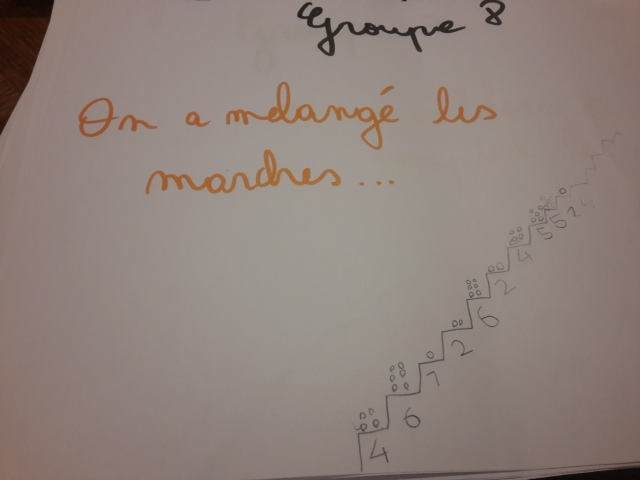 Groupe 8
On a mélangé les
marches...
4
6
1
2
6
2
4
5
5
1